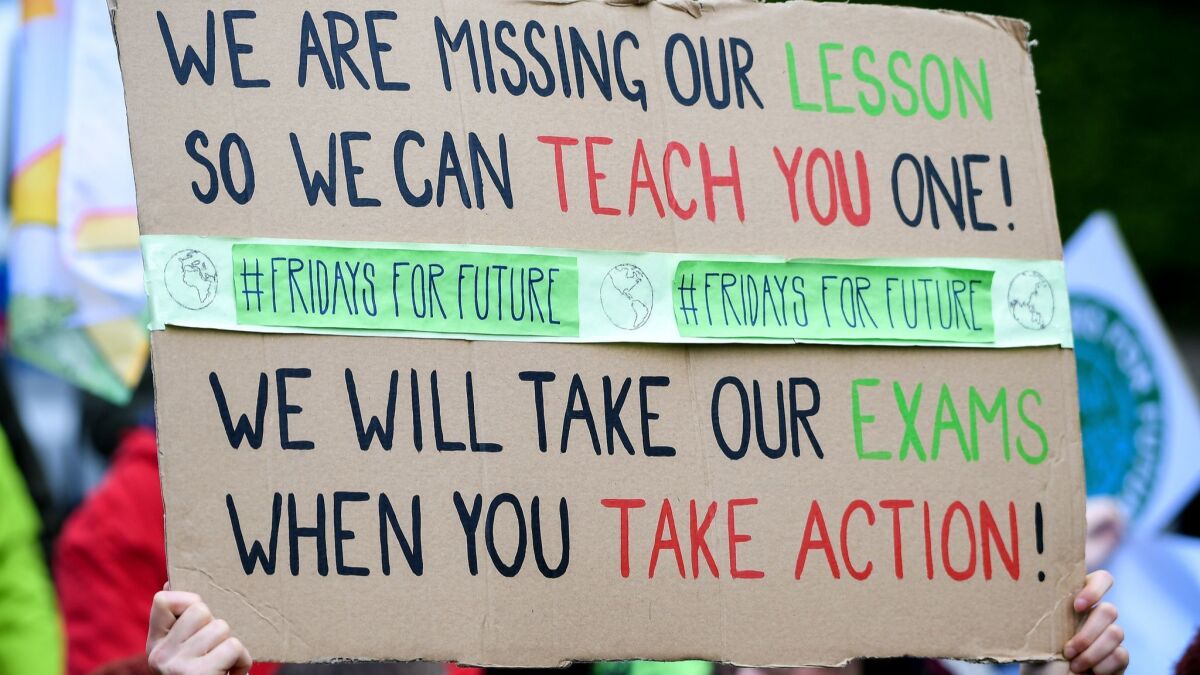 WE ARE MISSING OUR LESSON
SO WE CAN TEACH YOU ONE!
#FRIDAYS FOR FUTURE #FRIDAYS FOR FUTURE
WE WILL TAKE OUR EXAMS
WHEN YOU TAKE ACTION!
FOR